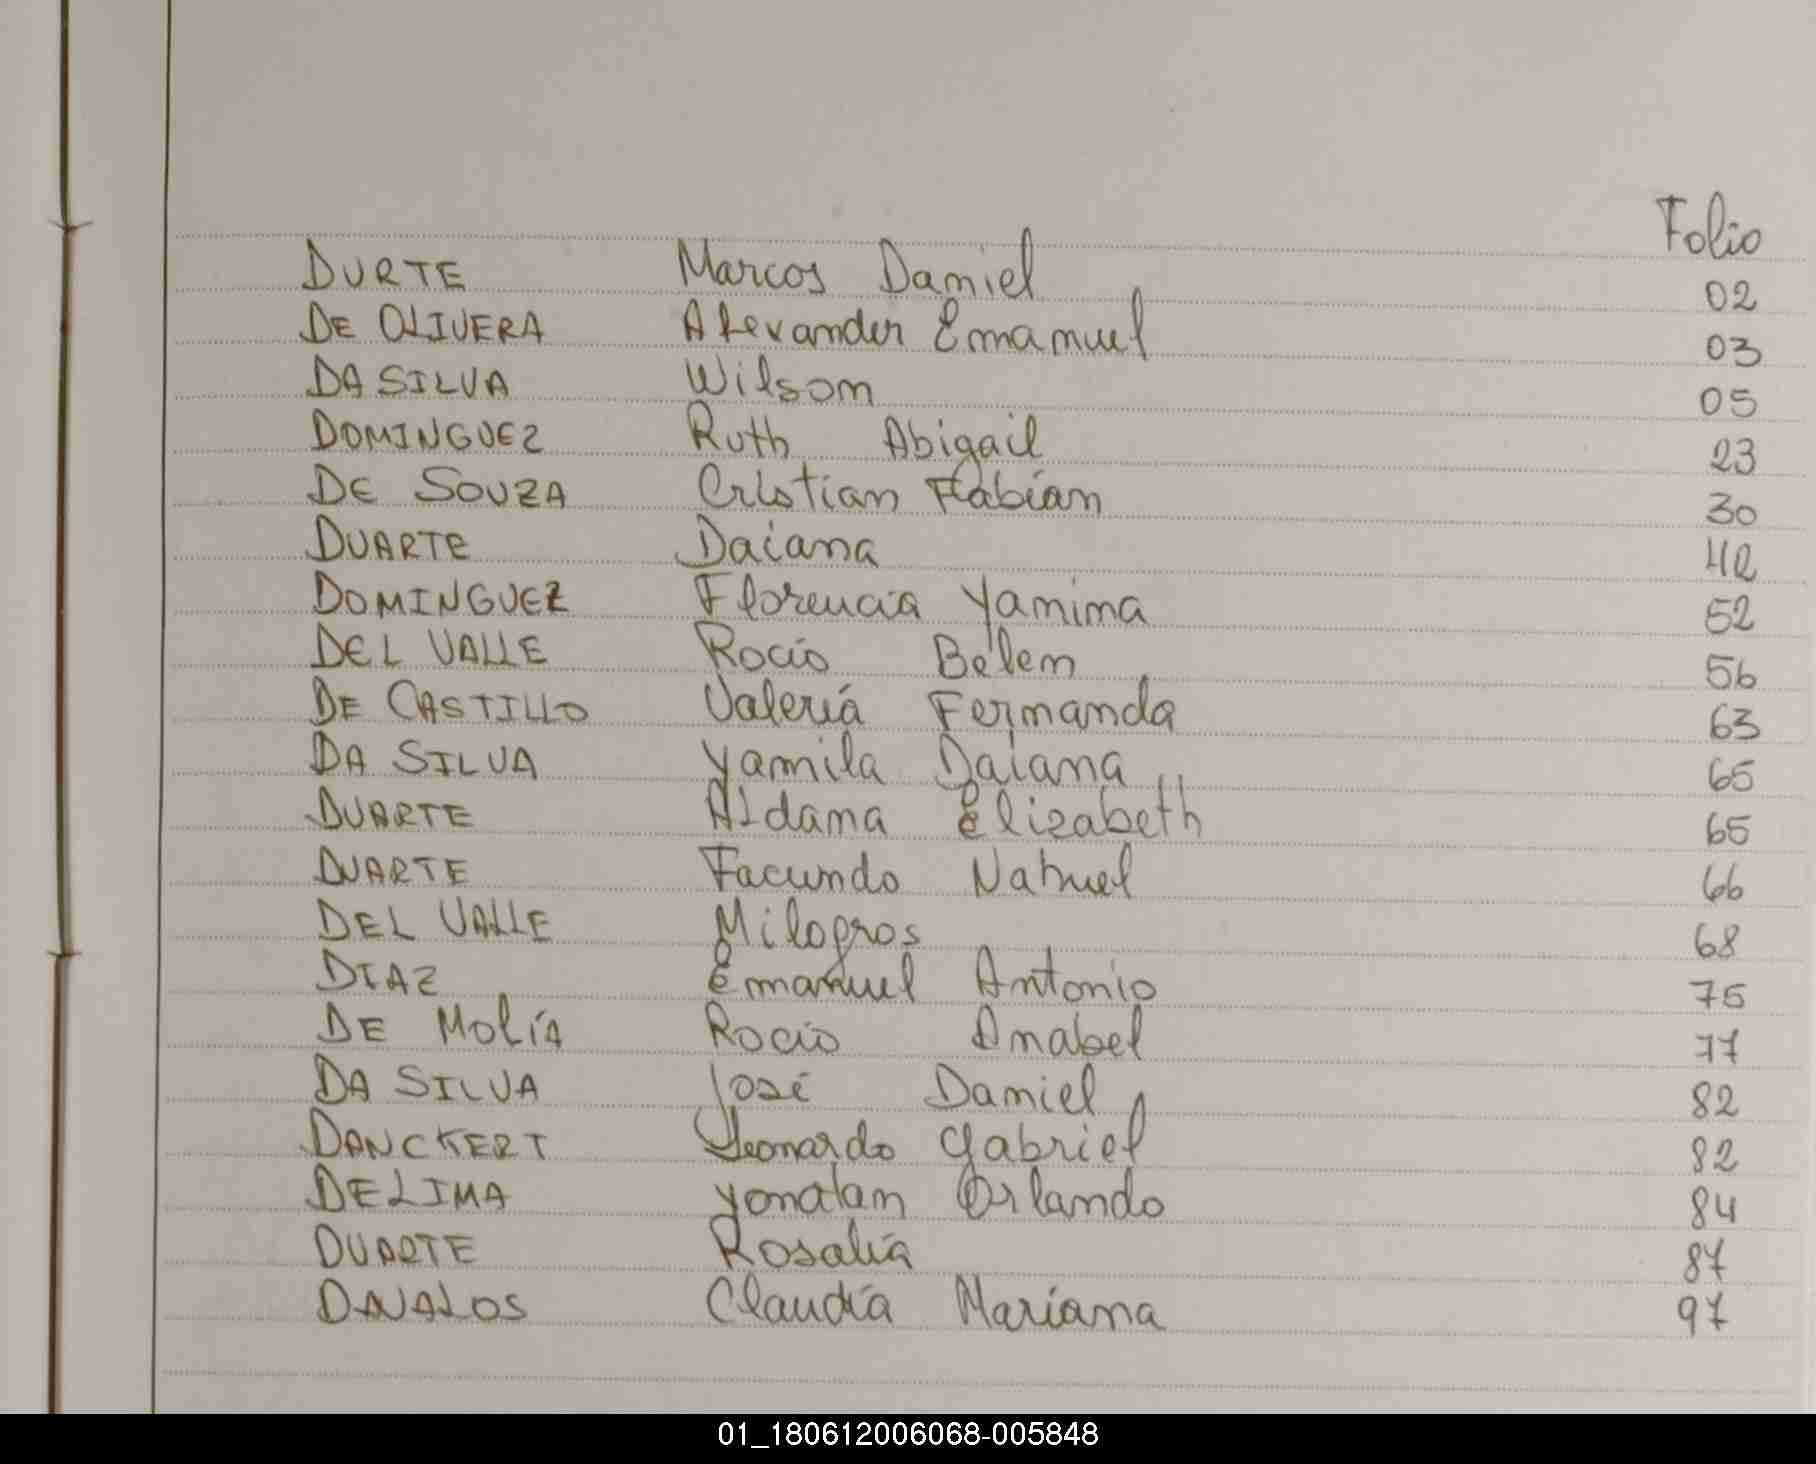 Folio
DURTE Marcos Daniel 02
DE OLIVERA Alexander Emanuel 03
DA SILVA Wilson 05
DOMINGUEZ Ruth Abigail 23
DE SOUZA Cristian Fabian 30
DUARTE Daiana 42
DOMINGUEZ Florencia Yanina 52
DEL VALLE Rocio Belen 56
DE CASTILLO Valeria Fernanda 63
DA SILVA Yamila Daiana 65
DUARTE Aldana Elizabeth 65
DUARTE Facundo Nahuel 66
DEL VALLE Milagros 68
DIAZ Emanuel Antonio 75
DE MOLÍA Rocio Anabel 77
DA SILVA José Daniel 82
DANCKERT Leonardo Gabriel 82
DELIMA Yonatan Orlando 84
DUARTE Rosalia 87
DAVALOS Claudia Mariana 97
01_180612006068-005848